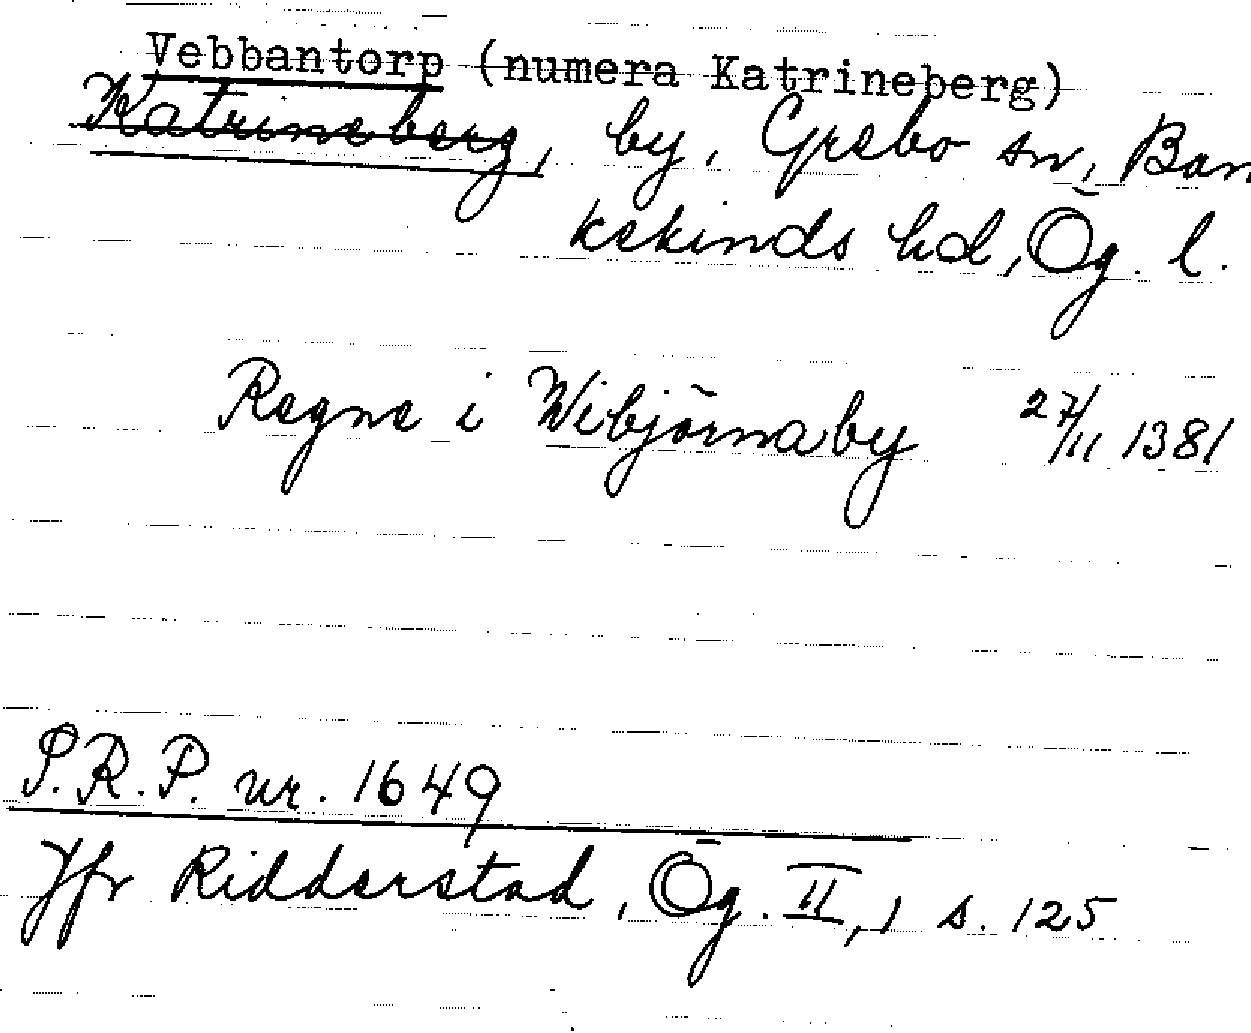 Vebbantorp (numera Katrineberg)
Katrineberg, by, Grebo sn, Ban
kekinds hd, Ög. l.
Regne i Wibjörnaby 27/11 1381
S.R.P. nr. 1649
Jfr Ridderstad, Ög. II, 1 s. 125